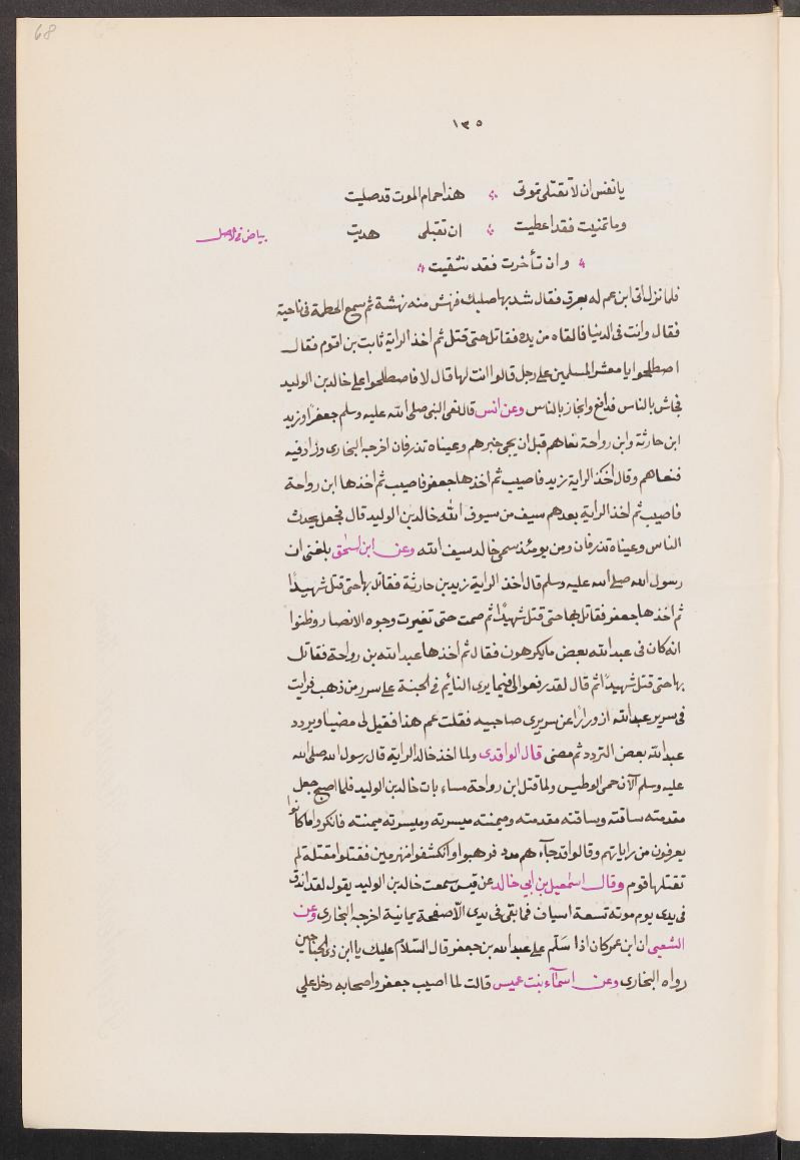 68
١٣٥
يا نفس ان لا تقتلى تموتى ؞ هذا حمام الموت قد صليت
وما تمنيت فقد اعطيت ؞ ان تقبلى هديت
بياض فى الاصل
؞ وان تأخرت فقد شقيت ؞
فلما نزل اتى ابن عم له بعرق فقال شد بها صلبك فنهش منه نهشة ثم سمع الحطمة فى ناحية
فقال وانت فى الدنيا فالقاه من يده فقاتل حتى قتل ثم اخذ الراية ثابت بن اقوم فقال
اصطلحوا يا معشر المسلمين على رجل قالوا انت لها قال لا فاصطلحوا على خالد بن الوليد
فجاش بالناس فدافع وانحاز بالناس وعن انس قال نعى النبى صلى الله عليه وسلم جعفرا وزيد
ابن حارثة وابن رواحة نعاهم قبل ان يجى خبرهم وعيناه تذرفان اخرجه البخارى وزاد فيه
فنعاهم وقال اخذ الراية زيد فاصيب ثم اخذها جعفر فاصيب ثم اخذها ابن رواحة
فاصيب ثم اخذ الراية بعدهم سيف من سيوف الله خالد بن الوليد قال فجعل يحدث
الناس وعيناه تذرفان ومن يومئذ سمى خالد سيف الله وعن ابن اسحق بلغنى ان
رسول الله صلى الله عليه وسلم قال اخذ الراية زيد بن حارثة فقاتل بها حتى قتل شهيدًا
ثم اخذها جعفر فقاتل بها حتى قتل شهيدًا ثم صمت حتى تغيرت وجوه الانصار وظنوا
انه كان فى عبد الله بعض ما يكرهون فقال ثم اخذها عبد الله بن رواحة فقاتل
بها حتى قتل شهيدًا ثم قال لقد رفعوا الى فيما يرى النائم فى الجنة على سرر من ذهب فرايت
فى سرير عبد الله ازورارا عن سريرى صاحبيه فقلت عم هذا فقيل لى مضيا وتردد
عبد الله بعض التردد ثم مضى قال الواقدى ولما اخذ خالد الراية قال رسول الله صلى الله
عليه وسلم الآن حمى الوطيس ولما قتل ابن رواحة مساء بات خالد بن الوليد فلما اصبح جعل
مقدمته ساقته وساقته مقدمته وميمنته ميسرته وميسرته ميمنته فانكروا ما كانوا
يعرفون من راياتهم وقالوا قد جآءهم مدد فرهبوا وانكشفوا منهزمين فقتلوا مقتلة لم
تقتلها قوم وقال اسمعيل بن ابى خالد عن قيس سمعت خالد بن الوليد يقول لقد اندق
فى يدى يوم موتة تسعة اسياف فما بقى فى يدى الا صفحة يمانية اخرجه البخارى وعن
الشعبى ان ابن عمر كان اذا سَلّم على عبد الله بن جعفر قال السّلام عليك يا ابن ذى الجناحين
رواه البخارى وعن اسمآء بنت عميس قالت لما اصيب جعفر واصحابه دخل على